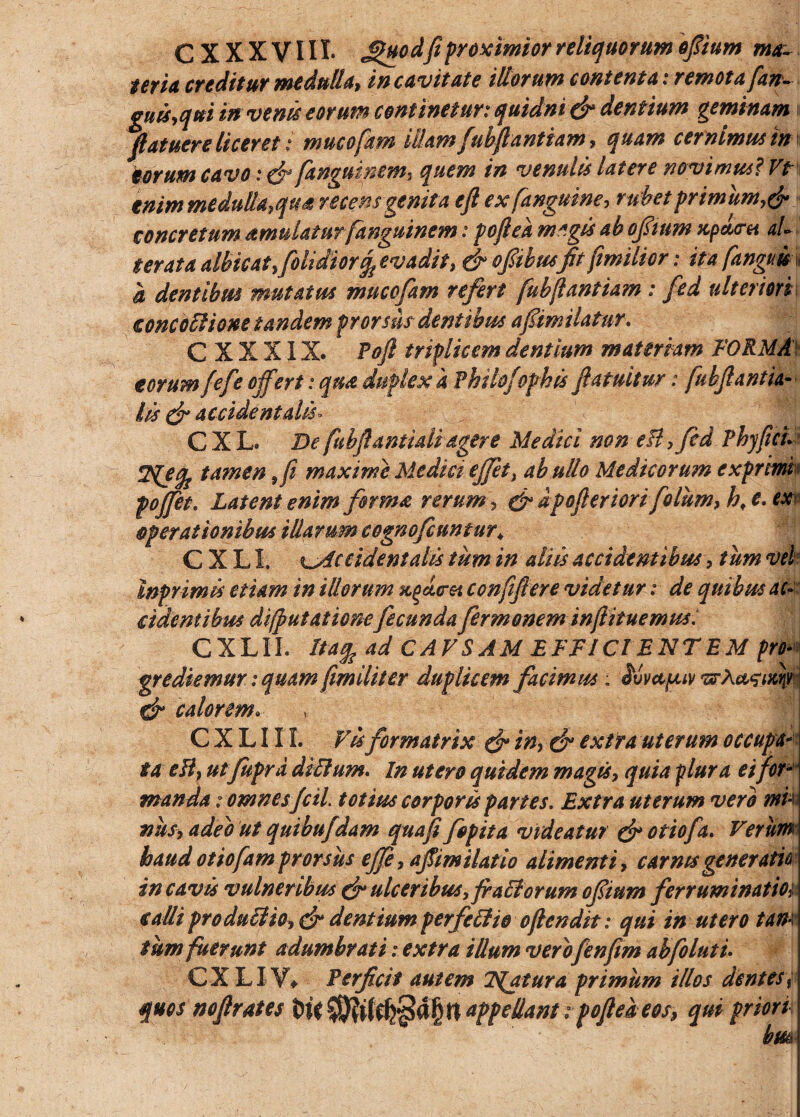 CXXXVIII. Quod si proximior reliquorum oßium ma-
teria creditur medulla, in cavitate illorum contenta: remota san-
guis, qui in venis eorum continetur: quidni & dentium geminam
statuere liceret: mucosam illam substantiam, quam cernimus in
eorum cavo: & sanguinem, quem in venulis latere novimus? Vt
enim medulla, quæ recens genita est ex sanguine, rubet primùm, &
concretum æmulatur sanguinem: posteà magis ab oßium κράσει al-
terata albicat, solidiorq́ evadit, & oßibus fit similior: ita sanguis
à dentibus mutatus mucosam refert substantiam: sed ulteriori
concoctione tandem prorsùs dentibus aßimilatur.
CXXXIX. Post triplicem dentium materiam FORMA
eorum sese offert: quæ duplex à Philosophis statuitur: substantia-
lis & accidentalis.
CXL. De substantiali agere Medici non est, sed Physici.
Neq́ tamen, si maximè Medici esset, ab ullo Medicorum exprimi
posset. Latent enim formæ rerum, & à posteriori solùm, h. e. ex
operationibus illarum cognoscuntur.
CXLI. Accidentalis tùm in aliis accidentibus, tùm vel
inprimis etiam in illorum κράσει consistere videtur: de quibus ac-
cidentibus disputatione secunda sermonem instituemus.
CXLII. Itaq́ ad CAVSAM EFFICIENTEM pro-
grediemur: quam similiter duplicem facimus: δύναμιν πλαστικὴν
& calorem.
CXLIII. Vis formatrix & in, & extra uterum occupa-
ta est, ut suprà dictum. In utero quidem magis, quia plura ei for-
manda: omnes scil. totius corporis partes. Extra uterum verò mi-
nùs, adeò ut quibusdam quasi sopita videatur & otiosa. Verùm
haud otiosam prorsùs esse, aßimilatio alimenti, carnis generatio
in cavis vulneribus & ulceribus, fractorum oßium ferruminatio,
calli productio, & dentium perfectio ostendit: qui in utero tan-
tùm fuerunt adumbrati: extra illum verò sensim absoluti.
CXLIV. Perficit autem Natura primùm illos dentes,
quos nostrates die Milchzähn appellant: posteà eos, qui priori-
bus